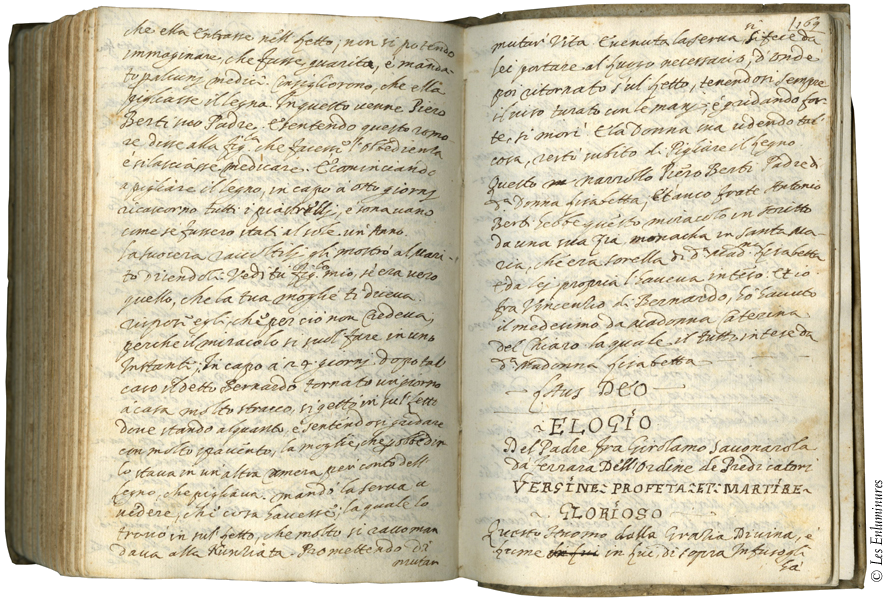 che ella entrasse nell letto; non si potendo
immaginare, che fusse guarita, e manda-
to p alcuni medici consigliorono, che ella
pigliasse il legno. In questo venne Piero
Berti suo Padre, e sentendo questo romo-
re disse alla figla. che facessi l'obbedienza
e si lasciasse medicare. E cominciando
a pigliare il legno, in capo a otto giorni
ricascorno tutti i piastrelli, e sonavano
come se fussero stati al sole un Anno.
La suocera gli mostrò al mari-
to dicendoli. Vedi tu figlo. mio, s'era vero
quello, che la tua moglie ti diceva.
rispose egli, che per ciò non credeva,
perche il miracolo si suol fare in uno
instanti, in capo à 29 giorni dopo tal
caso il detto Bernardo tornato un giorno
a casa molto stracco, si gettò in sul letto
dove stando alquanto, e sentendosi gridare
con molto spavento, la moglie, che
lo stava in un'altra camera, per conto dell
legno, che pigliava. mandò la serva a
vedere, che cosa havesse; la quale lo
trovò in sul letto, che molto si raccoman
dava alla Nunziata. Promettendo di
mutar
1169
mutar Vita. E venuta la serva si fece da
lei portare al fuoco necessario; d'onde
poi ritornato sul letto, tenendosi sempre
il viso turato con le mani, e gridando for-
te, si morì. E la Donna sua udendo tal
cosa, restò subito di Pigliare il legno
Questo narrollo Piero Berti Padre di
da. Donna Lisabetta. Et anco frate Antonio
Berti hebbe questo miracolo in scritto
da una sua Zia monacha in Santa Ma
ria, che era sorella di da. Madna. Lisabetta
e da lei propria l'haveva inteso. Et io
fra Vincenzio di Bernardo, ho havuto
il medesimo da Madonna Caterina
del Chiaro la quale il tutto intese da
da. Madonna Lisabetta
Laus DEO
ELOGIO
Del Padre fra Girolamo Savonarola
da Ferrara Dell'Ordine de Predicatori
VERGINE PROFETA ET MARTIRE
GLORIOSO
Questo Huomo dalla Grazia Divina, e
in lui, di sopra
© Les Enluminures